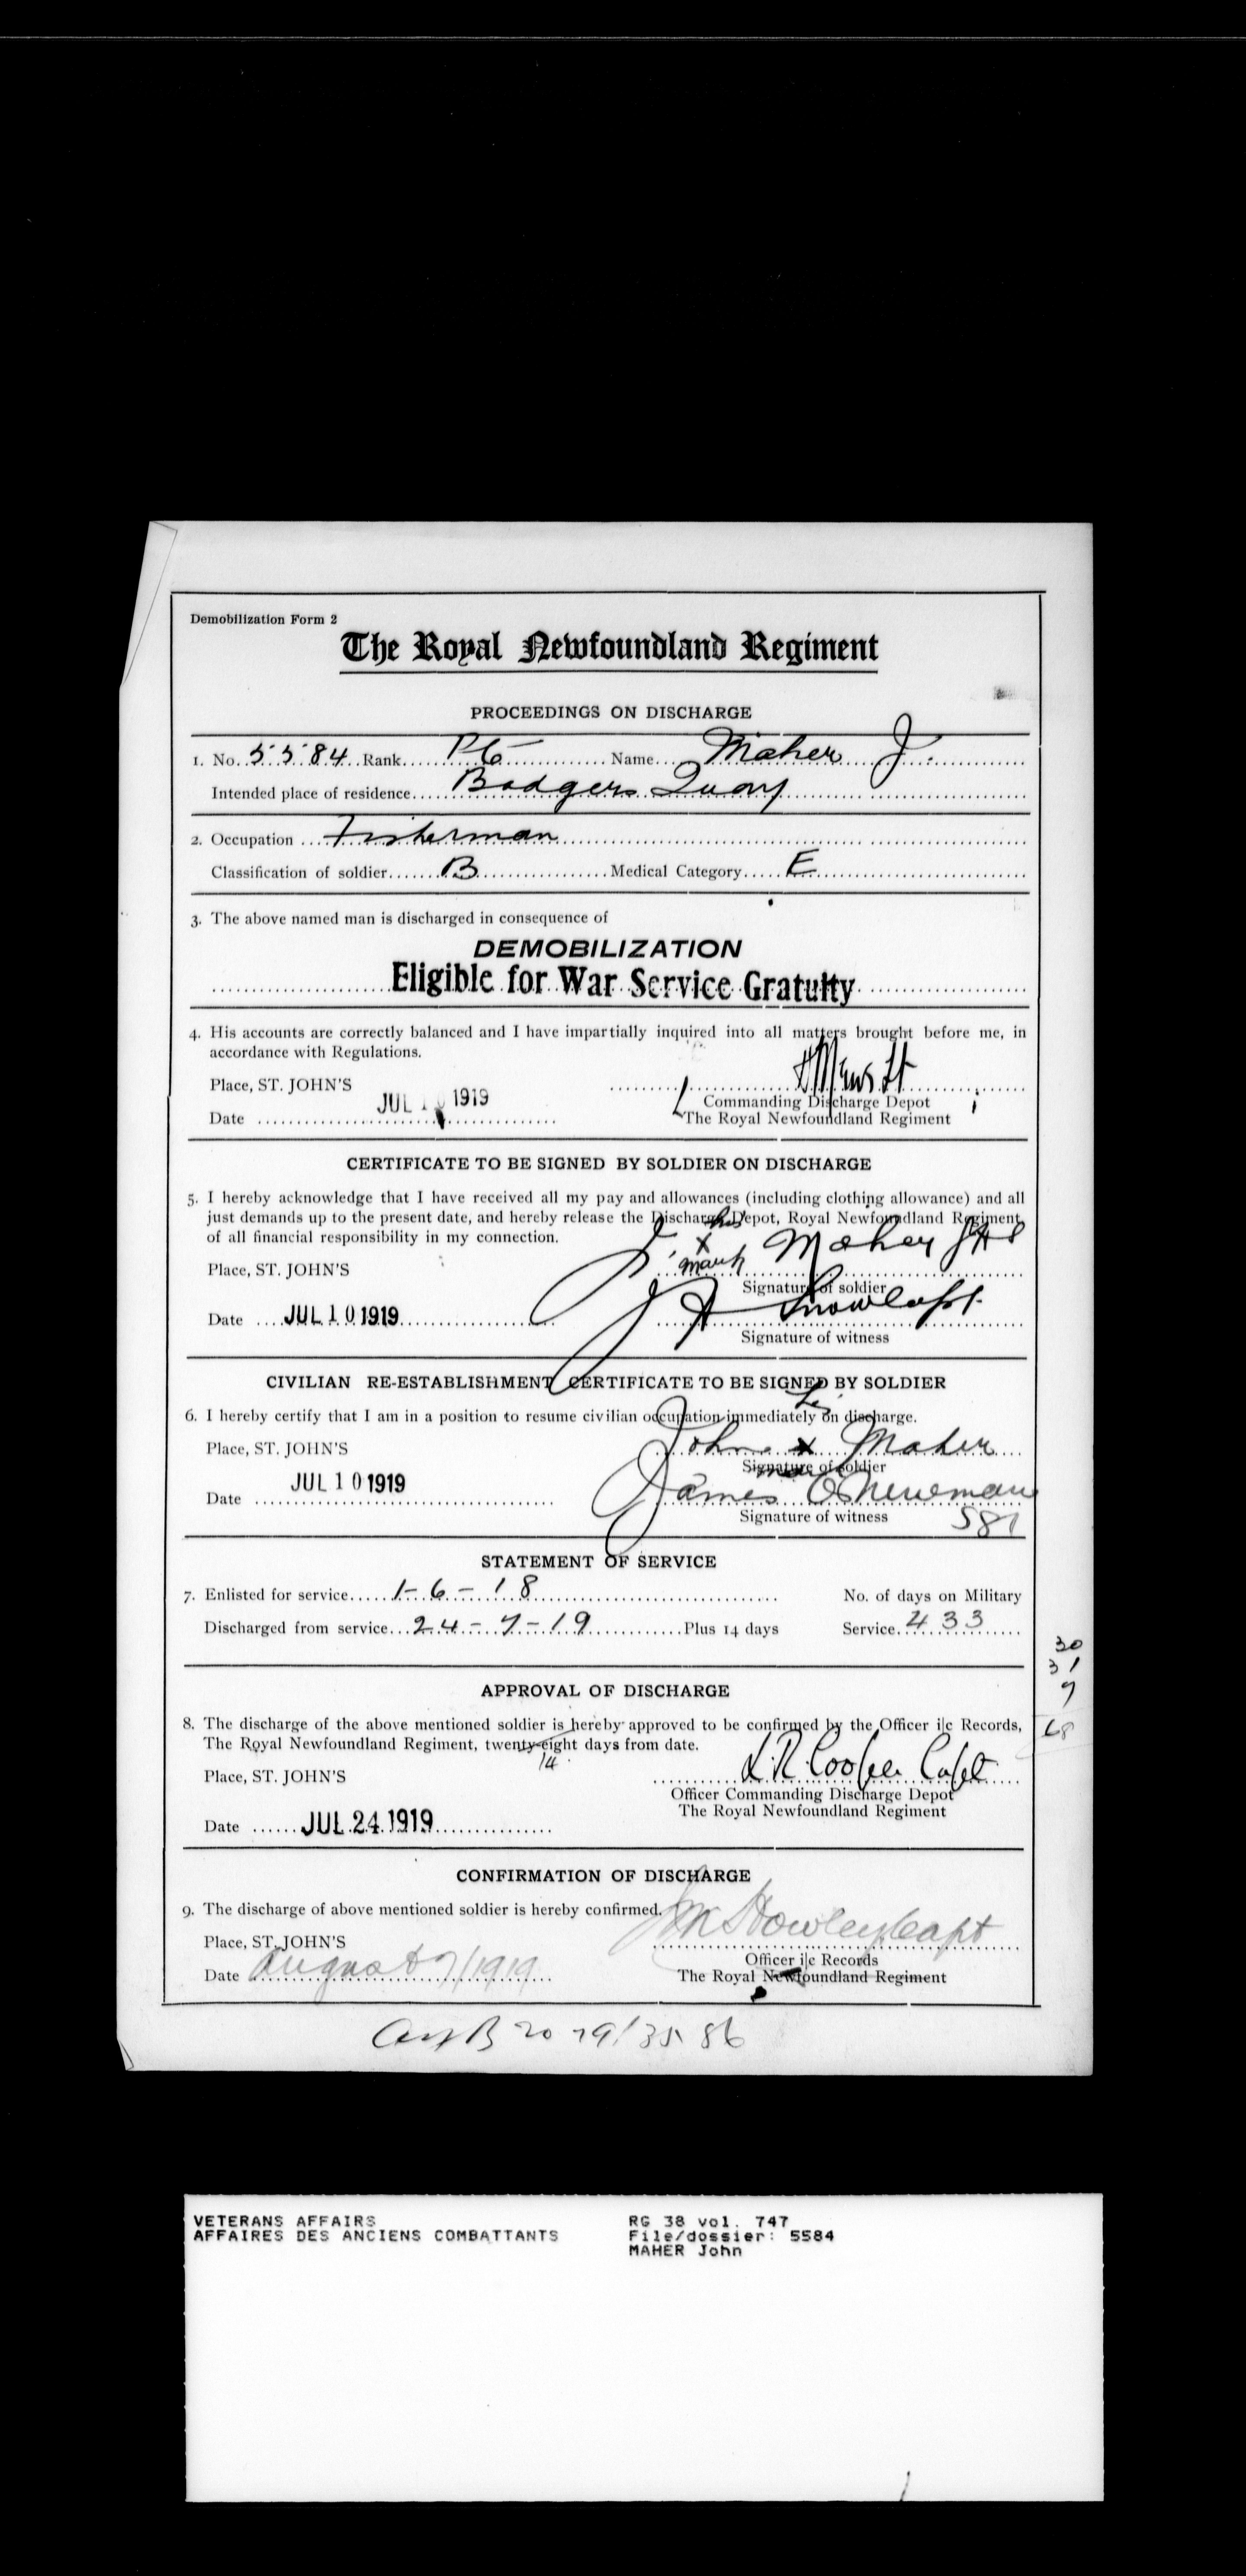 Demobilization Form 2
The Royal Newfoundland Regiment
PROCEEDINGS ON DISCHARGE
1. No. 5584 Rank Pte Name Maher J.
Intended place of residence Badgers Quay
2. Occupation Fisherman
Classification of soldier B Medical Category E
3. The above named man is discharged in consequence of
DEMOBILIZATION
Eligible for War Service Gratuity
4. His accounts are correctly balanced and I have impartially inquired into all matters brought before me, in
accordance with Regulations.
Place, ST. JOHN'S
Commanding Discharge Depot
Date JUL 1919
The Royal Newfoundland Regiment
CERTIFICATE TO BE SIGNED BY SOLDIER ON DISCHARGE
5. I hereby acknowledge that I have received all my pay and allowances (including clothing allowance) and all
just demands up to the present date, and hereby release the Discharge Depot, Royal Newfoundland Regiment,
of all financial responsibility in my connection.
J. his x mark Maher
Place, ST. JOHN'S
Signature of soldier
Date JUL 10 1919
J A Snow Capt.
Signature of witness
CIVILIAN RE-ESTABLISHMENT CERTIFICATE TO BE SIGNED BY SOLDIER
6. I hereby certify that I am in a position to resume civilian occupation immediately on discharge.
his
Place, ST. JOHN'S John x Maher
mark
Signature of soldier
Date JUL 10 1919
James Newman
Signature of witness 581
STATEMENT OF SERVICE
7. Enlisted for service 1-6-18 No. of days on Military
Discharged from service 24-7-19 Plus 14 days Service 433
30
31
7
68
APPROVAL OF DISCHARGE
8. The discharge of the above mentioned soldier is hereby approved to be confirmed by the Officer i|c Records,
The Royal Newfoundland Regiment, twenty-eight days from date.
14
Place, ST. JOHN'S L R Cooper Capt
Officer Commanding Discharge Depot
The Royal Newfoundland Regiment
Date JUL 24 1919
CONFIRMATION OF DISCHARGE
9. The discharge of above mentioned soldier is hereby confirmed.
Place, ST. JOHN'S Howley Capt
Officer i|c Records
Date August 7/1919 The Royal Newfoundland Regiment
B 20 79/35 86
VETERANS AFFAIRS RG 38 vol. 747
AFFAIRES DES ANCIENS COMBATTANTS File/dossier: 5584
MAHER John